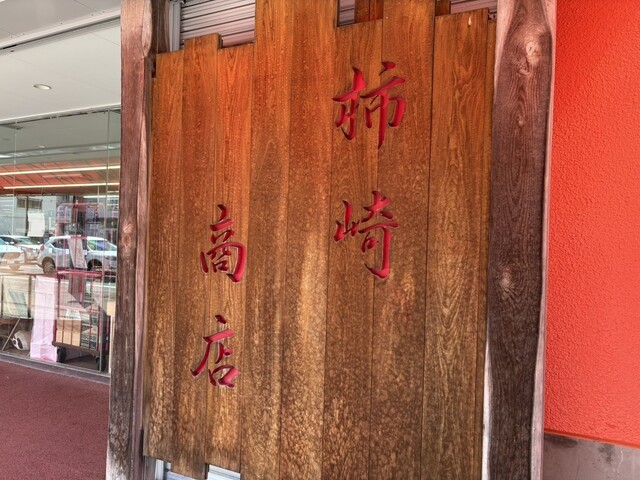 柿崎
商店